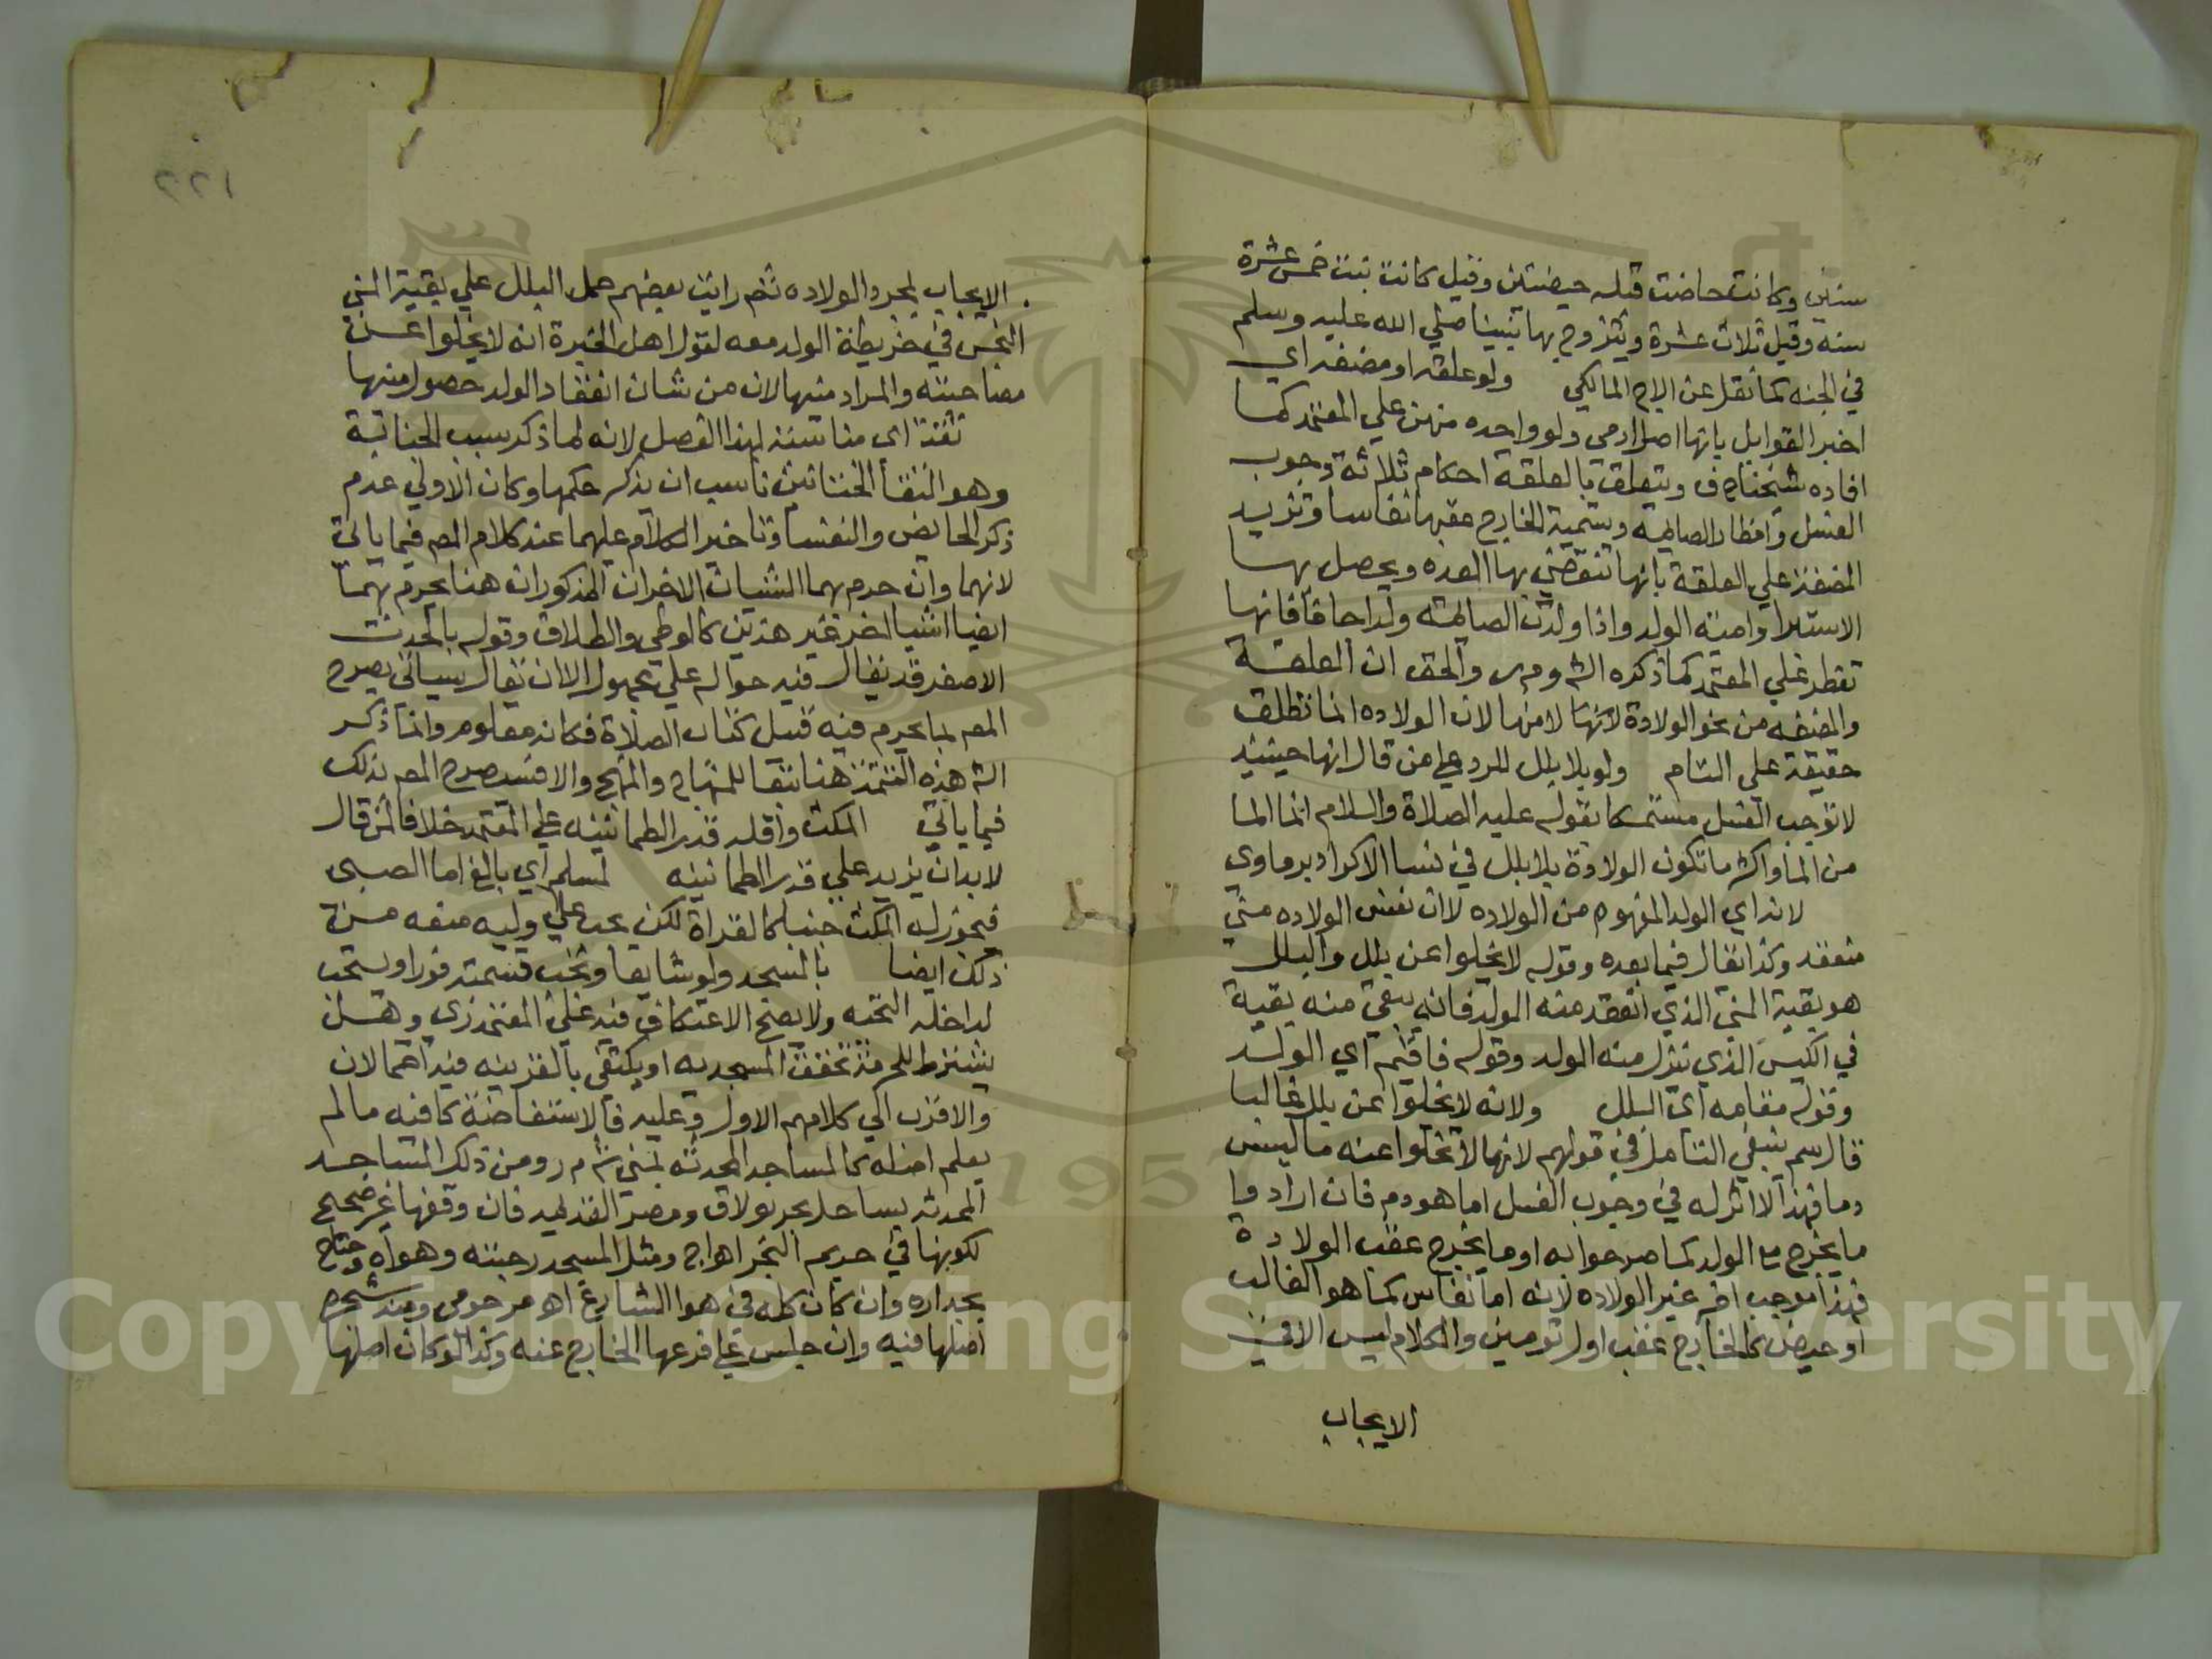 سنين وكانت حاضت قبله حيضتين وقيل كانت بنت خمس عشرة
سنه وقيل ثلاث عشرة ويتزوج بها نبينا صلي الله عليه وسلم
في الجنه كما نقل عن المالكي ولو علقه او مضغه اي
اخبر القوابل بانها اصل ادمى ولو واحده منهن علي المعتمد كما
افاده شيخنا ح ف ويتعلق بالعلقة احكام ثلاثة وجوب
الغسل وافطار الصايمه وتسمية الخارج عقبها نفاسا وتزيد
المضغة علي العلقة بانها تنقضي بها العده ويحصل بها
الاستبرا وامية الولد واذا ولدت الصايمه ولدا جافا فانها
تفطر علي المعتمد كما ذكره الش وم ر والحق ان العلقة
والمضغه من نحو الولادة لانها لا منها لان الولاده انما تطلق
حقيقة علي التام ولو بلا بلل للرد علي من قال انها حينيذ
لا توجب الغسل متمسكا بقوله عليه الصلاة والسلام انما الما
من الما واكثر ما تكون الولادة بلا بلل في نسا الاكراد برماوى
لانه اي الولد المفهوم من الولاده لا ان نفس الولاده مني
منعقد وكذا يقال فيما بعده وقوله لا يخلوا عن بلل والبلل
هو بقية المني الذي انعقد منه الولد فانه يبقى منه بقية
في الكيس الذي نزل منه الولد وقوله فاقيم اي الولد
وقوله مقامه اى البلل ولانه لا يخلوا عن بلل غالبا
قال سم ينبغي التامل في قولهم لانها لا تخلوا عنه ما ليس
دما فهذا لا اثر له في وجوب الغسل اما هو دم فان اراد وا
ما يخرج مع الولد كما صرحوا به او ما يخرج عقب الولادة
فهذا موجب اخر غير الولاده لانه اما نفاس كما هو الغالب
او حيض كالخارج عقب اول تومين والكلام ليس الا في
الايجاب
٢٢١
الايجاب بمجرد الولاده ثم رايت بعضهم حمل البلل علي بقية المني
النجس في خريطة الولد معه لقول اهل الخبرة انه لا يخلوا عن
مصاحبته والمراد منيها لان من شان انعقاد الولد حصول منيها
تتمة اى مناسبة لهذا الفصل لانه لما ذكر سبب الجنابة
وهو التقا الختانين ناسب ان يذكر حكمها وكان الاولي عدم
ذكر الحايض والنفسا وتاخير الكلام عليهما عند كلام المص فيما ياتى
لانهما وان حرم بهما الشيان الاخران المذكوران هنا يحرم بهما
ايضا اشيا اخر غير هذين كالوطي والطلاق وقوله بالحدث
الاصغر قد يقال فيه حواله علي مجهول الا ان يقال سياتى يصرح
المص بما يحرم فيه قبيل كتاب الصلاة فكانه معلوم وانما ذكر
الش هذه التتمة هنا تبعا للمنهاج والمنهج والا فسيصرح المص بذلك
فيما ياتي المكث واقله قدر الطمانينه علي المعتمد خلافا لمن قال
لا بد ان يزيد علي قدر الطمانينه لمسلم اي بالغ اما الصبى
فيجوز له المكث جنبا كالقراة لكن يجب علي وليه منعه من
ذلك ايضا بالمسجد ولو شايعا وتجب قسمته فورا ويستحب
لداخله التحيه ولا يصح الاعتكاف فيه علي المعتمد زى وهل
يشترط للحرمة تحقق المسجديه او يكتفى بالقرينه فيه احتمالان
والاقرب الي كلامهم الاول وعليه فالاستفاضة كافيه ما لم
يعلم اصله كالمساجد المحدثه بمنى ش م ر ومن ذلك المساجد
المحدثه بساحل بحر بولاق ومصر القديمه فان وقفها غير صحيح
لكونها في حريم البحر اهـ اج ومثل المسجد رحبته وهواه وجناح
بجداره وان كان كله في هوا الشارع اهـ مرحومى ومنه شجره
اصلها فيه وان جلس علي فرعها الخارج عنه وكذا لو كان اصلها